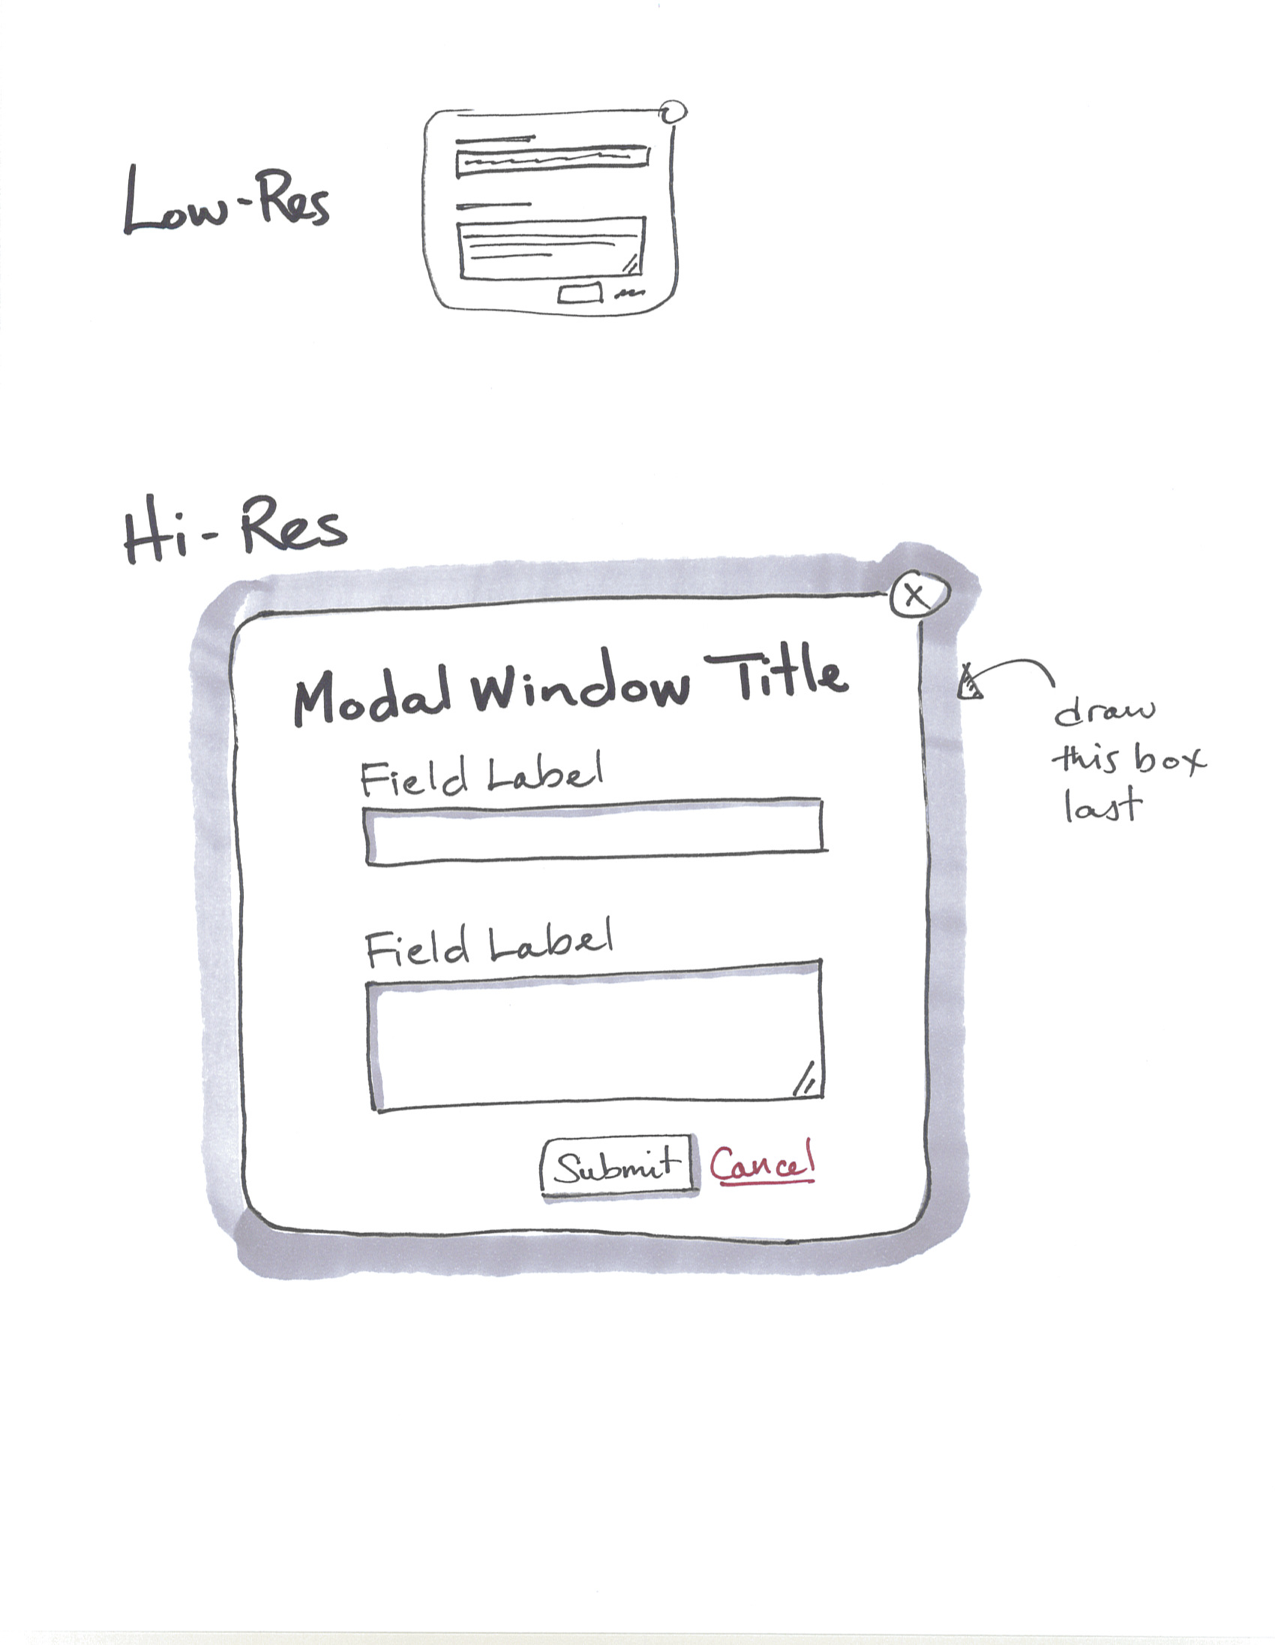 Low-Res
Hi-Res
X
Modal Window Title
Field Label
Field Label
Submit Cancel
draw
this box
last